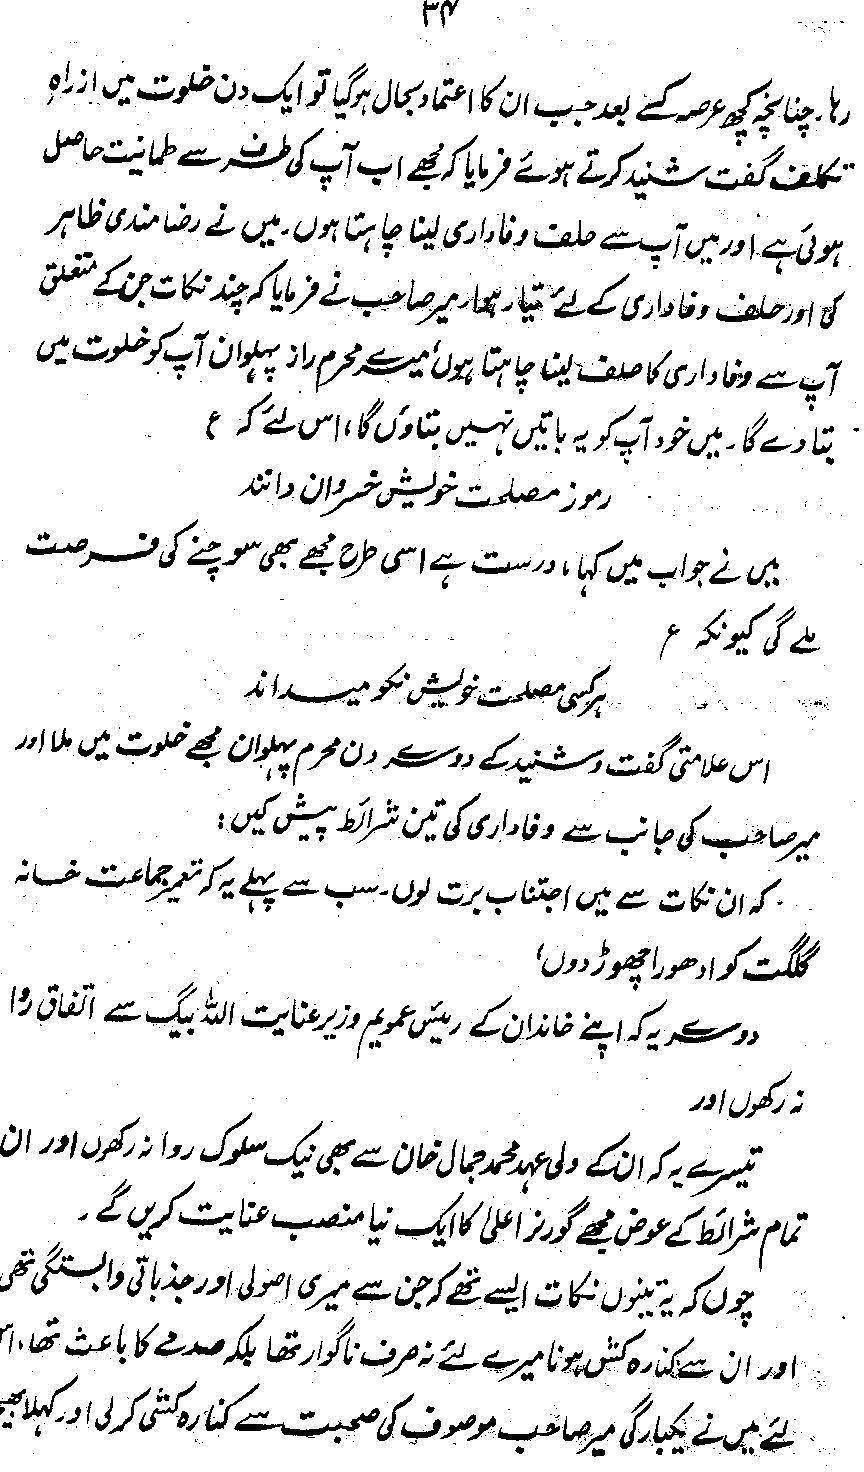 ۳۴
رہا۔ چنانچہ کچھ عرصہ کے بعد جب ان کا اعتماد بحال ہوگیا تو ایک دن خلوت میں از راہِ
تکلف گفت شنید کرتے ہوئے فرمایا کہ مجھے اب آپ کی طرف سے طمانیت حاصل
ہوئی ہے اور میں آپ سے حلف وفاداری لینا چاہتا ہوں۔ میں نے رضامندی ظاہر
کی اور حلف وفاداری کے لئے تیار ہوا۔ میر صاحب نے فرمایا کہ چند نکات جن کے متعلق
آپ سے وفاداری کا حلف لینا چاہتا ہوں، میرے محرم راز پہلوان آپ کو خلوت میں
بتا دے گا۔ میں خود آپ کو یہ باتیں نہیں بتاؤں گا، اس لئے کہ ع
رموز مصلحت خویش خسروان دانند
میں نے جواب میں کہا، درست ہے اسی طرح مجھے بھی سوچنے کی فرصت
ملے گی کیونکہ ع
ہر کسی مصلحت خویش نکو میداند
اس علامتی گفت و شنید کے دوسرے دن محرم پہلوان مجھے خلوت میں ملا اور
میر صاحب کی جانب سے وفاداری کی تین شرائط پیش کیں:
کہ ان نکات سے میں اجتناب برت لوں۔ سب سے پہلے یہ کہ تعمیر جماعت خانہ
گلگت کو ادھورا چھوڑ دوں،
دوسرے یہ کہ اپنے خاندان کے رئیس عمویم وزیر عنایت اللہ بیگ سے اتفاق روا
نہ رکھوں اور
تیسرے یہ کہ ان کے ولی عہد محمد جمال خان سے بھی نیک سلوک روا نہ رکھوں اور ان
تمام شرائط کے عوض مجھے گورنر اعلیٰ کا ایک نیا منصب عنایت کریں گے۔
چوں کہ یہ تینوں نکات ایسے تھے کہ جن سے میری اصولی اور جذباتی وابستگی تھی
اور ان سے کنارہ کش ہونا میرے لئے نہ صرف ناگوار تھا بلکہ صدمے کا باعث تھا، اس
لئے میں نے یکبارگی میر صاحب موصوف کی صحبت سے کنارہ کشی کر لی اور کہلا بھیجا